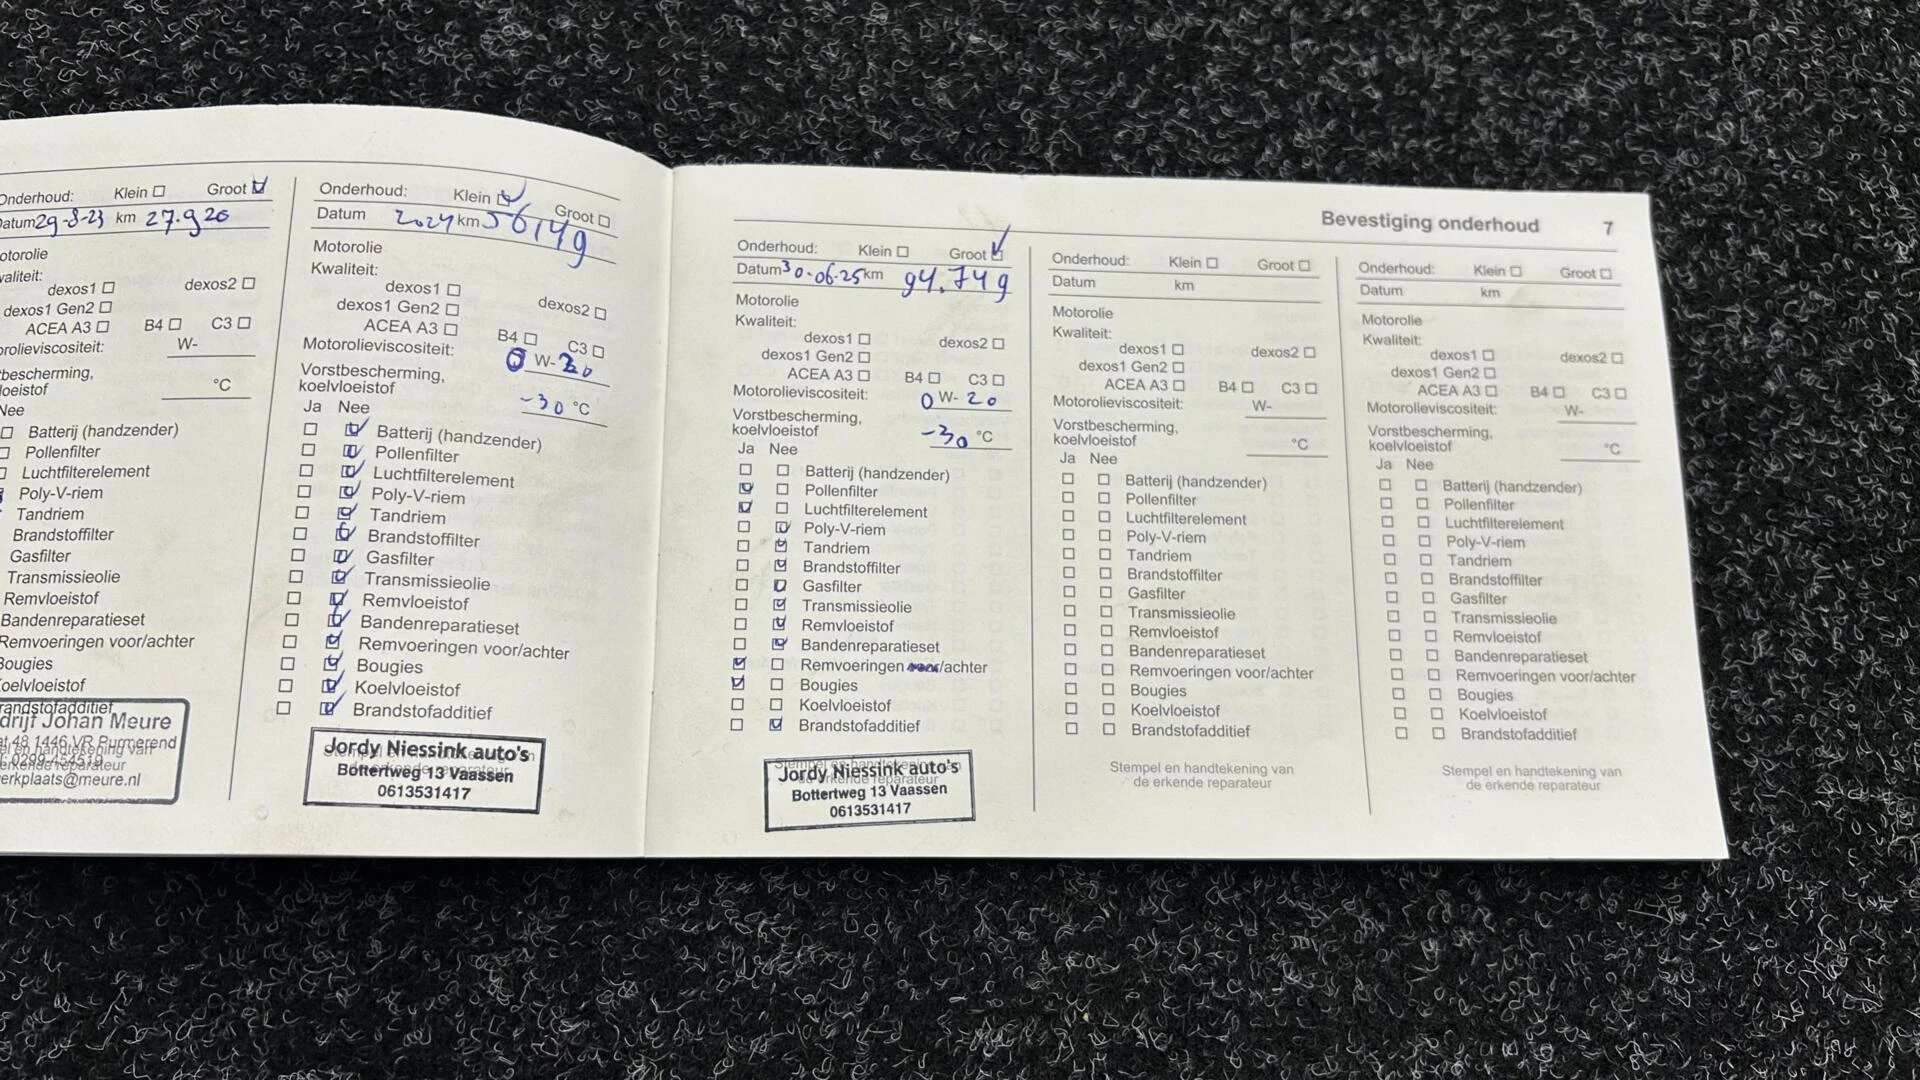 Onderhoud: Klein Groot
Datum 29-8-23 km 27.920
otorolie
waliteit:
dexos1 dexos2
dexos1 Gen2
ACEA A3 B4 C3
orolieviscositeit: W-
tbescherming,
loeistof °C
Nee
Batterij (handzender)
Pollenfilter
Luchtfilterelement
Poly-V-riem
Tandriem
Brandstoffilter
Gasfilter
Transmissieolie
Remvloeistof
Bandenreparatieset
Remvoeringen voor/achter
Bougies
Koelvloeistof
randstofadditief
drijf Johan Meure
at 48 1446 VR Purmerend
erkplaats@meure.nl
Onderhoud: Klein Groot
Datum 2024 km 56149
Motorolie
Kwaliteit:
dexos1 dexos2
dexos1 Gen2
ACEA A3 B4 C3
Motorolieviscositeit: 0 W- 20
Vorstbescherming,
koelvloeistof -30 °C
Ja Nee
Batterij (handzender)
Pollenfilter
Luchtfilterelement
Poly-V-riem
Tandriem
Brandstoffilter
Gasfilter
Transmissieolie
Remvloeistof
Bandenreparatieset
Remvoeringen voor/achter
Bougies
Koelvloeistof
Brandstofadditief
Jordy Niessink auto's
Bottertweg 13 Vaassen
0613531417
Bevestiging onderhoud 7
Onderhoud: Klein Groot
Datum 30-06-25 km 94.749
Motorolie
Kwaliteit:
dexos1 dexos2
dexos1 Gen2
ACEA A3 B4 C3
Motorolieviscositeit: 0 W- 20
Vorstbescherming,
koelvloeistof -30 °C
Ja Nee
Batterij (handzender)
Pollenfilter
Luchtfilterelement
Poly-V-riem
Tandriem
Brandstoffilter
Gasfilter
Transmissieolie
Remvloeistof
Bandenreparatieset
Remvoeringen voor/achter
Bougies
Koelvloeistof
Brandstofadditief
Stempel en handtekening van
de erkende reparateur
Jordy Niessink auto's
Bottertweg 13 Vaassen
0613531417
Onderhoud: Klein Groot
Datum km
Motorolie
Kwaliteit:
dexos1 dexos2
dexos1 Gen2
ACEA A3 B4 C3
Motorolieviscositeit: W-
Vorstbescherming,
koelvloeistof °C
Ja Nee
Batterij (handzender)
Pollenfilter
Luchtfilterelement
Poly-V-riem
Tandriem
Brandstoffilter
Gasfilter
Transmissieolie
Remvloeistof
Bandenreparatieset
Remvoeringen voor/achter
Bougies
Koelvloeistof
Brandstofadditief
Stempel en handtekening van
de erkende reparateur
Onderhoud: Klein Groot
Datum km
Motorolie
Kwaliteit:
dexos1 dexos2
dexos1 Gen2
ACEA A3 B4 C3
Motorolieviscositeit: W-
Vorstbescherming,
koelvloeistof °C
Ja Nee
Batterij (handzender)
Pollenfilter
Luchtfilterelement
Poly-V-riem
Tandriem
Brandstoffilter
Gasfilter
Transmissieolie
Remvloeistof
Bandenreparatieset
Remvoeringen voor/achter
Bougies
Koelvloeistof
Brandstofadditief
Stempel en handtekening van
de erkende reparateur